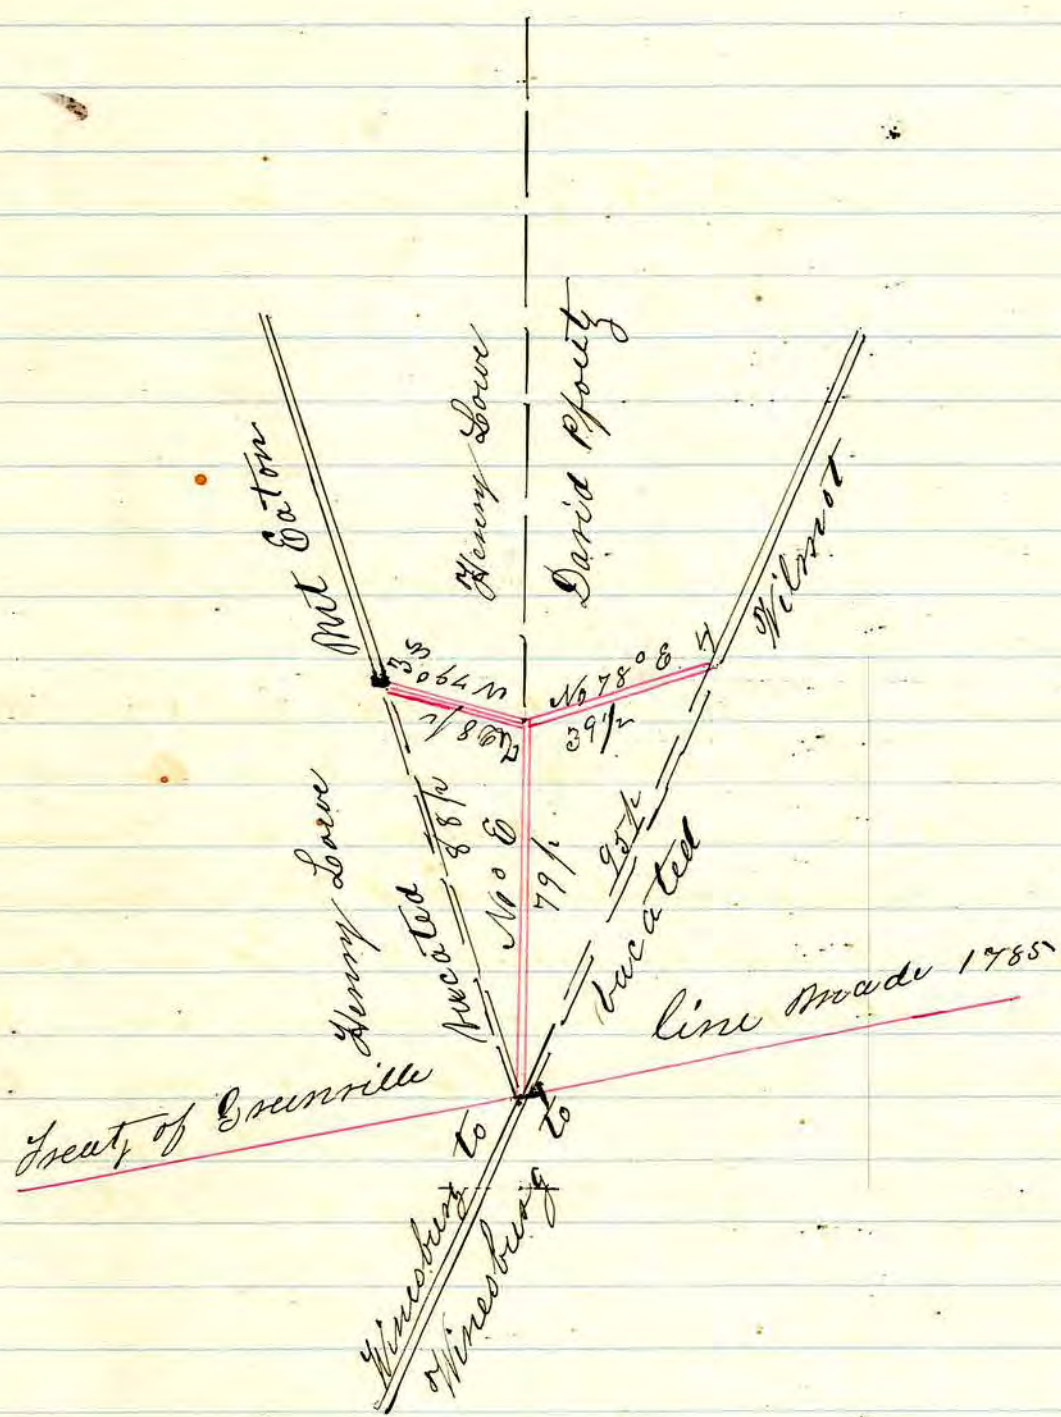 Mt Eaton
Henry Lowe
David Pfoutz
Wilmot
3
N 79° W
28 p
2
No 78° E
39 p
4
Henry Lowe
vacated
88 p
No° E
79 p
95 p
vacated
1
Treaty of Greenville line made 1785
Winesburg to
Winesburg to